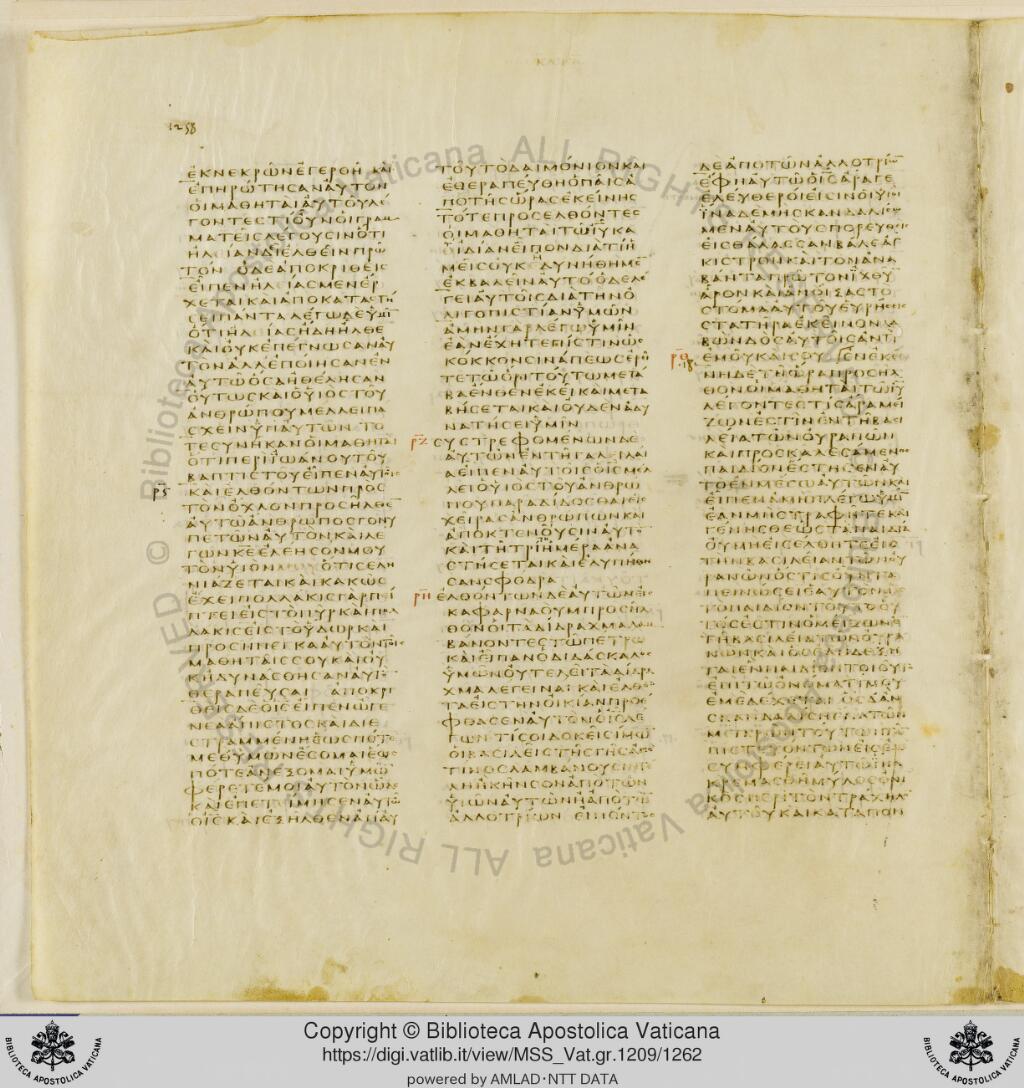 1258
ΕΚΝΕΚΡΩΝΕΓΕΡΘΗ ΚΑΙ
ΕΠΗΡΩΤΗΣΑΝΑΥΤΟΝ
ΟΙΜΑΘΗΤΑΙΑΥΤΟΥΛΕ
ΓΟΝΤΕΣΤΙΟΥΝΟΙΓΡΑΜ
ΜΑΤΕΙΣΛΕΓΟΥΣΙΝΟΤΙ
ΗΛΕΙΑΝΔΕΙΕΛΘΕΙΝΠΡΩ
ΤΟΝ ΟΔΕΑΠΟΚΡΙΘΕΙΣ
ΕΙΠΕΝΗΛΕΙΑΣΜΕΝΕΡ
ΧΕΤΑΙΚΑΙΑΠΟΚΑΤΑΣΤΗ
ΣΕΙΠΑΝΤΑΛΕΓΩΔΕΥΜΙ̅
ΟΤΙΗΛΕΙΑΣΗΔΗΗΛΘΕ
ΚΑΙΟΥΚΕΠΕΓΝΩΣΑΝΑΥ
ΤΟΝΑΛΛΕΠΟΙΗΣΑΝΕΝ
ΑΥΤΩΟΣΑΗΘΕΛΗΣΑΝ
ΟΥΤΩΣΚΑΙΟΥΙΟΣΤΟΥ
ΑΝΘΡΩΠΟΥΜΕΛΛΕΙΠΑ
ΣΧΕΙΝΥΠΑΥΤΩΝ ΤΟ
ΤΕΣΥΝΗΚΑΝΟΙΜΑΘΗΤΑΙ
ΟΤΙΠΕΡΙΙΩΑΝΟΥΤΟΥ
ΒΑΠΤΙΣΤΟΥΕΙΠΕΝΑΥΤΟΙΣ
Ρ̅Ϛ̅ ΚΑΙΕΛΘΟΝΤΩΝΠΡΟΣ
ΤΟΝΟΧΛΟΝΠΡΟΣΗΛΘΕ
ΑΥΤΩΑΝΘΡΩΠΟΣΓΟΝΥ
ΠΕΤΩΝΑΥΤΟΝΚΑΙΛΕ
ΓΩΝΚΕΕΛΕΗΣΟΝΜΟΥ
ΤΟΝΥΙΟΝ ΟΤΙΣΕΛΗ
ΝΙΑΖΕΤΑΙΚΑΙΚΑΚΩΣ
ΕΧΕΙΠΟΛΛΑΚΙΣΓΑΡΠΕΙ
ΠΤΕΙΕΙΣΤΟΠΥΡΚΑΙΠΟΛ
ΛΑΚΙΣΕΙΣΤΟΥΔΩΡΚΑΙ
ΠΡΟΣΗΝΕΓΚΑΑΥΤΟΝΤΟΙΣ
ΜΑΘΗΤΑΙΣΣΟΥΚΑΙΟΥ
ΚΗΔΥΝΑΣΘΗΣΑΝΑΥΤΟ̅
ΘΕΡΑΠΕΥΣΑΙ ΑΠΟΚΡΙ
ΘΕΙΣΔΕΟΙΣΕΙΠΕΝΩΓΕ
ΝΕΑΑΠΙΣΤΟΣΚΑΙΔΙΕ
ΣΤΡΑΜΜΕΝΗΕΩΣΠΟΤΕ
ΜΕΘΥΜΩΝΕΣΟΜΑΙΕΩΣ
ΠΟΤΕΑΝΕΞΟΜΑΙΥΜΩ̅
ΦΕΡΕΤΕΜΟΙΑΥΤΟΝΩΔΕ
ΚΑΙΕΠΕΤΙΜΗΣΕΝΑΥΤΩ
ΟΙΣΚΑΙΕΞΗΛΘΕΝΑΠΑΥ
ΤΟΥΤΟΔΑΙΜΟΝΙΟΝΚΑΙ
ΕΘΕΡΑΠΕΥΘΗΟΠΑΙΣΑ
ΠΟΤΗΣΩΡΑΣΕΚΕΙΝΗΣ
ΤΟΤΕΠΡΟΣΕΛΘΟΝΤΕΣ
ΟΙΜΑΘΗΤΑΙΤΩΙΥΚΑ
ΤΙΔΙΑΝΕΙΠΟΝΔΙΑΤΙΗ
ΜΕΙΣΟΥΚΕΔΥΝΗΘΗΜΕ̅
ΕΚΒΑΛΕΙΝΑΥΤΟΟΔΕΛΕ
ΓΕΙΑΥΤΟΙΣΔΙΑΤΗΝΟ
ΛΙΓΟΠΙΣΤΙΑΝΥΜΩΝ
ΑΜΗΝΓΑΡΛΕΓΩΥΜΙΝ
ΕΑΝΕΧΗΤΕΠΙΣΤΙΝΩΣ
ΚΟΚΚΟΝΣΙΝΑΠΕΩΣΕΡΕΙ
ΤΕΤΩΟΡΙΤΟΥΤΩΜΕΤΑ
ΒΑΕΝΘΕΝΕΚΕΙΚΑΙΜΕΤΑ
ΒΗΣΕΤΑΙΚΑΙΟΥΔΕΝΑΔΥ
ΝΑΤΗΣΕΙΥΜΙΝ
Ρ̅Ζ̅ ΣΥΣΤΡΕΦΟΜΕΝΩΝΔΕ
ΑΥΤΩΝΕΝΤΗΓΑΛΕΙΛΑΙ
ΑΕΙΠΕΝΑΥΤΟΙΣΟΙΣΜΕΛ
ΛΕΙΟΥΙΟΣΤΟΥΑΝΘΡΩ
ΠΟΥΠΑΡΑΔΙΔΟΣΘΑΙΕΙΣ
ΧΕΙΡΑΣΑΝΘΡΩΠΩΝΚΑΙ
ΑΠΟΚΤΕΝΟΥΣΙΝΑΥΤΟ̅
ΚΑΙΤΗΤΡΙΤΗΗΜΕΡΑΑΝΑ
ΣΤΗΣΕΤΑΙΚΑΙΕΛΥΠΗΘΗ
ΣΑΝΣΦΟΔΡΑ
Ρ̅Η̅ ΕΛΘΟΝΤΩΝΔΕΑΥΤΩΝΕΙΣ
ΚΑΦΑΡΝΑΟΥΜΠΡΟΣΗΛ
ΘΟΝΟΙΤΑΔΙΔΡΑΧΜΑΛΑΜ
ΒΑΝΟΝΤΕΣΤΩΠΕΤΡΩ
ΚΑΙΕΙΠΑΝΟΔΙΔΑΣΚΑΛΟΣ
ΥΜΩΝΟΥΤΕΛΕΙΤΑΔΙΔΡΑ
ΧΜΑΛΕΓΕΙΝΑΙ ΚΑΙΕΛΘΟ̅
ΤΑΕΙΣΤΗΝΟΙΚΙΑΝΠΡΟΕ
ΦΘΑΣΕΝΑΥΤΟΝΟΙΣΛΕ
ΓΩΝΤΙΣΟΙΔΟΚΕΙΣΙΜΩ̅
ΟΙΒΑΣΙΛΕΙΣΤΗΣΓΗΣΑΠΟ
ΤΙΝΟΣΛΑΜΒΑΝΟΥΣΙΝΤΕ
ΛΗΗΚΗΝΣΟΝΑΠΟΤΩΝ
ΥΙΩΝΑΥΤΩΝΗΑΠΟΤΩ̅
ΑΛΛΟΤΡΙΩΝ ΕΙΠΟΝΤΟΣ
ΔΕΑΠΟΤΩΝΑΛΛΟΤΡΙΩ̅
ΕΦΗΑΥΤΩΟΙΣΑΡΑΓΕ
ΕΛΕΥΘΕΡΟΙΕΙΣΙΝΟΙΥΙΟΙ
ΙΝΑΔΕΜΗΣΚΑΝΔΑΛΙΣΩ
ΜΕΝΑΥΤΟΥΣΠΟΡΕΥΘΕΙΣ
ΕΙΣΘΑΛΑΣΣΑΝΒΑΛΕΑΓ
ΚΙΣΤΡΟΝΚΑΙΤΟΝΑΝΑ
ΒΑΝΤΑΠΡΩΤΟΝΙΧΘΥ̅
ΑΡΟΝΚΑΙΑΝΟΙΞΑΣΤΟ
ΣΤΟΜΑΑΥΤΟΥΕΥΡΗΣΕΙΣ
ΣΤΑΤΗΡΑΕΚΕΙΝΟΝΛΑ
ΒΩΝΔΟΣΑΥΤΟΙΣΑΝΤΙ
Ρ̅Θ̅ ΕΜΟΥΚΑΙΣΟΥ ΕΝΕΚΕΙ
ΝΗΔΕΤΗΩΡΑΠΡΟΣΗΛ
ΘΟΝΟΙΜΑΘΗΤΑΙΤΩΙΥ
ΛΕΓΟΝΤΕΣΤΙΣΑΡΑΜΕΙ
ΖΩΝΕΣΤΙΝΕΝΤΗΒΑΣΙ
ΛΕΙΑΤΩΝΟΥΡΑΝΩΝ
ΚΑΙΠΡΟΣΚΑΛΕΣΑΜΕΝΟΣ
ΠΑΙΔΙΟΝΕΣΤΗΣΕΝΑΥ
ΤΟΕΝΜΕΣΩΑΥΤΩΝΚΑΙ
ΕΙΠΕΝΑΜΗΝΛΕΓΩΥΜΙ̅
ΕΑΝΜΗΣΤΡΑΦΗΤΕΚΑΙ
ΓΕΝΗΣΘΕΩΣΤΑΠΑΙΔΙΑ
ΟΥΜΗΕΙΣΕΛΘΗΤΕΕΙΣ
ΤΗΝΒΑΣΙΛΕΙΑΝΤΩΝΟΥ
ΡΑΝΩΝΟΣΤΙΣΟΥΝΤΑ
ΠΕΙΝΩΣΕΙΕΑΥΤΟΝΩΣ
ΤΟΠΑΙΔΙΟΝΤΟΥΤΟΟΥ
ΤΟΣΕΣΤΙΝΟΜΕΙΖΩΝΕ̅
ΤΗΒΑΣΙΛΕΙΑΤΩΝΟΥΡΑ
ΝΩΝΚΑΙΟΣΕΑΝΔΕΞΗ
ΤΑΙΕΝΠΑΙΔΙΟΝΤΟΙΟΥΤΟ
ΕΠΙΤΩΟΝΟΜΑΤΙΜΟΥ
ΕΜΕΔΕΧΕΤΑΙ ΟΣΔΑΝ
ΣΚΑΝΔΑΛΙΣΗΕΝΑΤΩΝ
ΜΕΙΚΡΩΝΤΟΥΤΩΝΤΩΝ
ΠΙΣΤΕΥΟΝΤΩΝΕΙΣΕΜΕ
ΣΥΜΦΕΡΕΙΑΥΤΩΙΝΑ
ΚΡΕΜΑΣΘΗΜΥΛΟΣΟΝΙ
ΚΟΣΠΕΡΙΤΟΝΤΡΑΧΗΛΟ̅
ΑΥΤΟΥΚΑΙΚΑΤΑΠΟΝ
Vaticana ALL RIGHTS RESERVED © Biblioteca Apostolica Vaticana ALL RIGHTS
BIBLIOTECA APOSTOLICA VATICANA
Copyright © Biblioteca Apostolica Vaticana
https://digi.vatlib.it/view/MSS_Vat.gr.1209/1262
powered by AMLAD·NTT DATA
BIBLIOTECA APOSTOLICA VATICANA